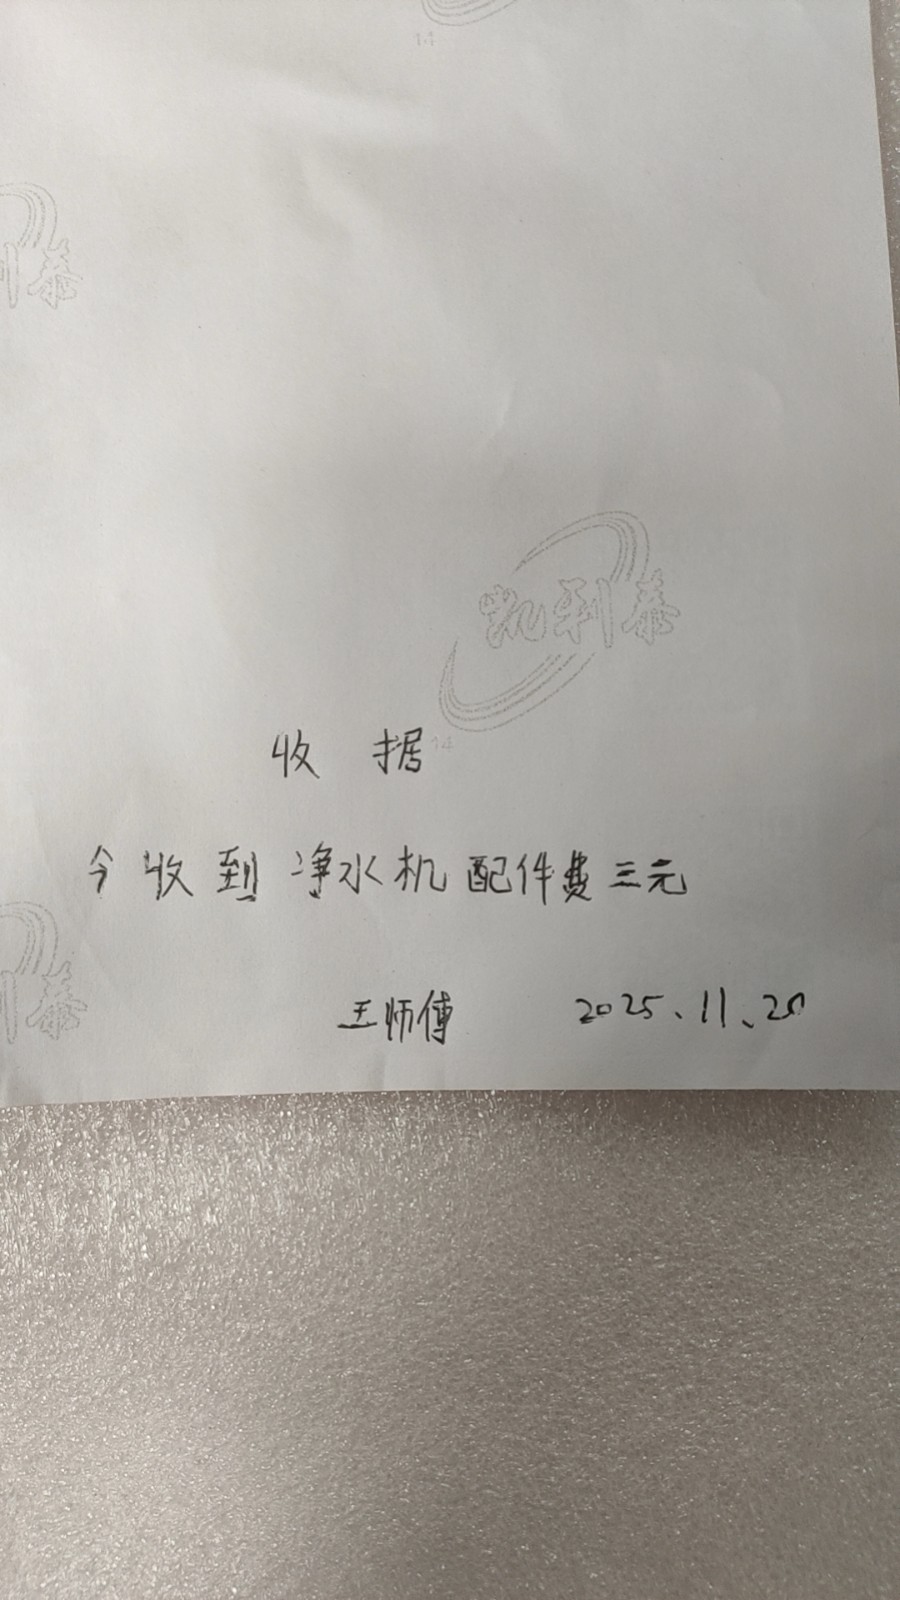 14
利泰
凯利泰
14
收 据
今收到净水机配件费三元
利泰
王师傅 2025、11、20